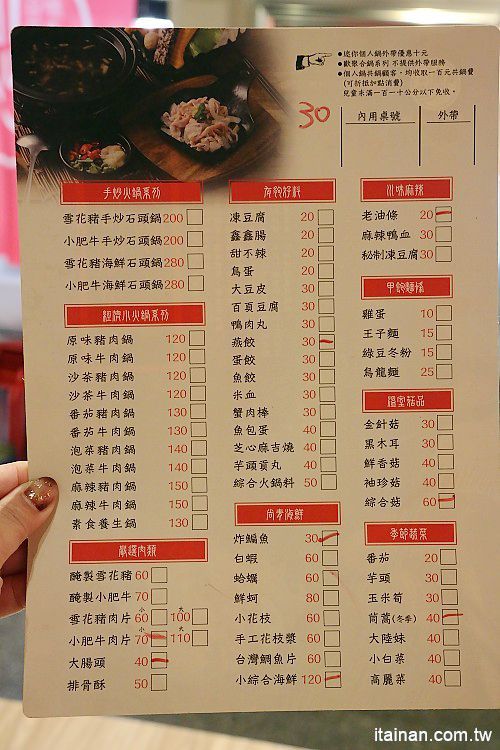 ●迷你個人鍋外帶優惠十元
●歡聚合鍋系列 不提供外帶服務
●個人鍋共鍋顧客,均收取一百元共鍋費
(可折抵加點消費)
兒童未滿一百一十公分以下免收。
30
內用桌號 外帶
手炒火鍋系列
雪花豬手炒石頭鍋 200
小肥牛手炒石頭鍋 200
雪花豬海鮮石頭鍋 280
小肥牛海鮮石頭鍋 280
經濟小火鍋系列
原味豬肉鍋 120
原味牛肉鍋 120
沙茶豬肉鍋 120
沙茶牛肉鍋 120
番茄豬肉鍋 130
番茄牛肉鍋 130
泡菜豬肉鍋 140
泡菜牛肉鍋 140
麻辣豬肉鍋 150
麻辣牛肉鍋 150
素食養生鍋 130
嚴選肉類
醃製雪花豬 60
醃製小肥牛 70
雪花豬肉片 小60 大100
小肥牛肉片 小70 大110
大腸頭 40
排骨酥 50
有夠好料
凍豆腐 20
鑫鑫腸 20
甜不辣 20
鳥蛋 20
大豆皮 30
百頁豆腐 30
鴨肉丸 30
燕餃 30
蛋餃 30
魚餃 30
米血 30
蟹肉棒 30
魚包蛋 40
芝心麻吉燒 40
芋頭貢丸 40
綜合火鍋料 50
尚青海鮮
炸鯿魚 30
白蝦 60
蛤蠣 60
鮮蚵 80
小花枝 60
手工花枝漿 60
台灣鯛魚片 60
小綜合海鮮 120
川味麻辣
老油條 20
麻辣鴨血 30
秘制凍豆腐 30
呷飽麵條
雞蛋 10
王子麵 15
綠豆冬粉 15
烏龍麵 25
溫室菇品
金針菇 30
黑木耳 30
鮮香菇 40
袖珍菇 40
綜合菇 60
季節蔬菜
番茄 20
芋頭 30
玉米筍 30
茼蒿(冬季) 40
大陸妹 40
小白菜 40
高麗菜 40
itainan.com.tw